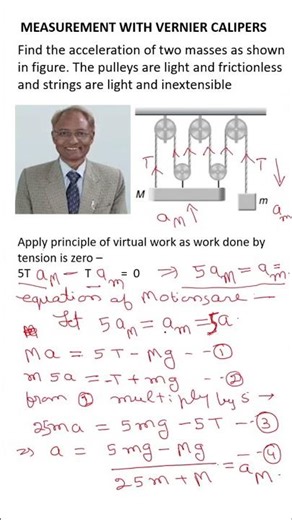 MEASUREMENT WITH VERNIER CALIPERS
Find the acceleration of two masses as shown
in figure. The pulleys are light and frictionless
and strings are light and inextensible
T
T
M
m
a_M ↑
a_m
Apply principle of virtual work as work done by
tension is zero –
5T a_M — T a_m = 0 ⇒ 5a_M = a_m
equation of Motions are —
Let 5a_M = a_m = 5a
Ma = 5T - Mg -- ①
m 5a = -T + mg -- ②
from ② multiply by 5 →
25ma = 5mg - 5T -- ③
⇒ a = 5mg - Mg / 25m + M = a_M -- ④